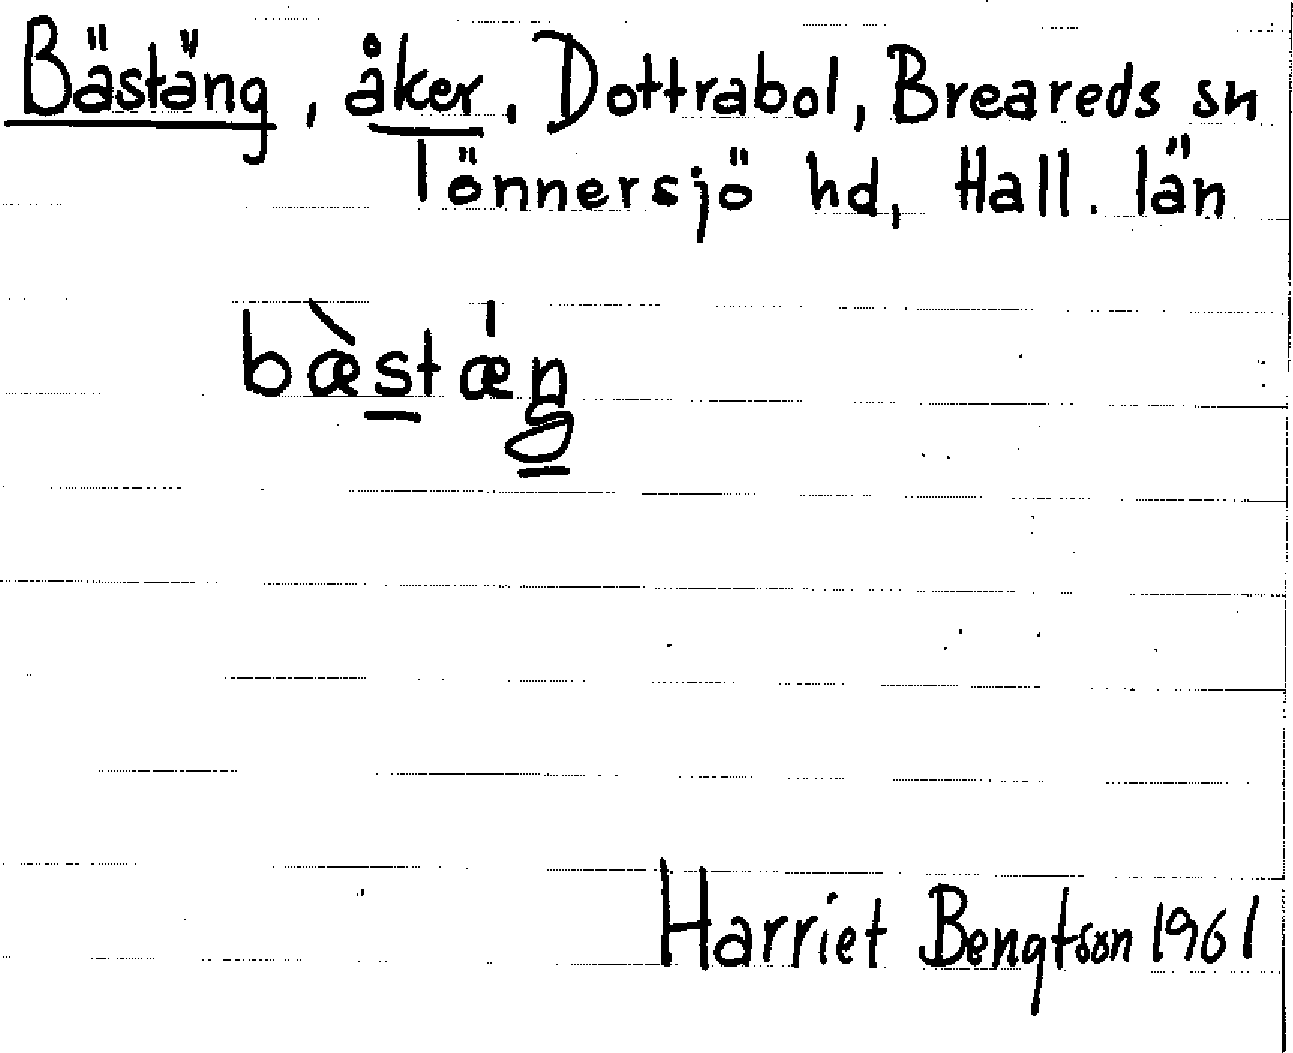 Bästäng, åker, Dottrabol, Breareds sn
Tönnersjö hd, Hall. län
bæ̀stǽŋ
Harriet Bengtson 1961